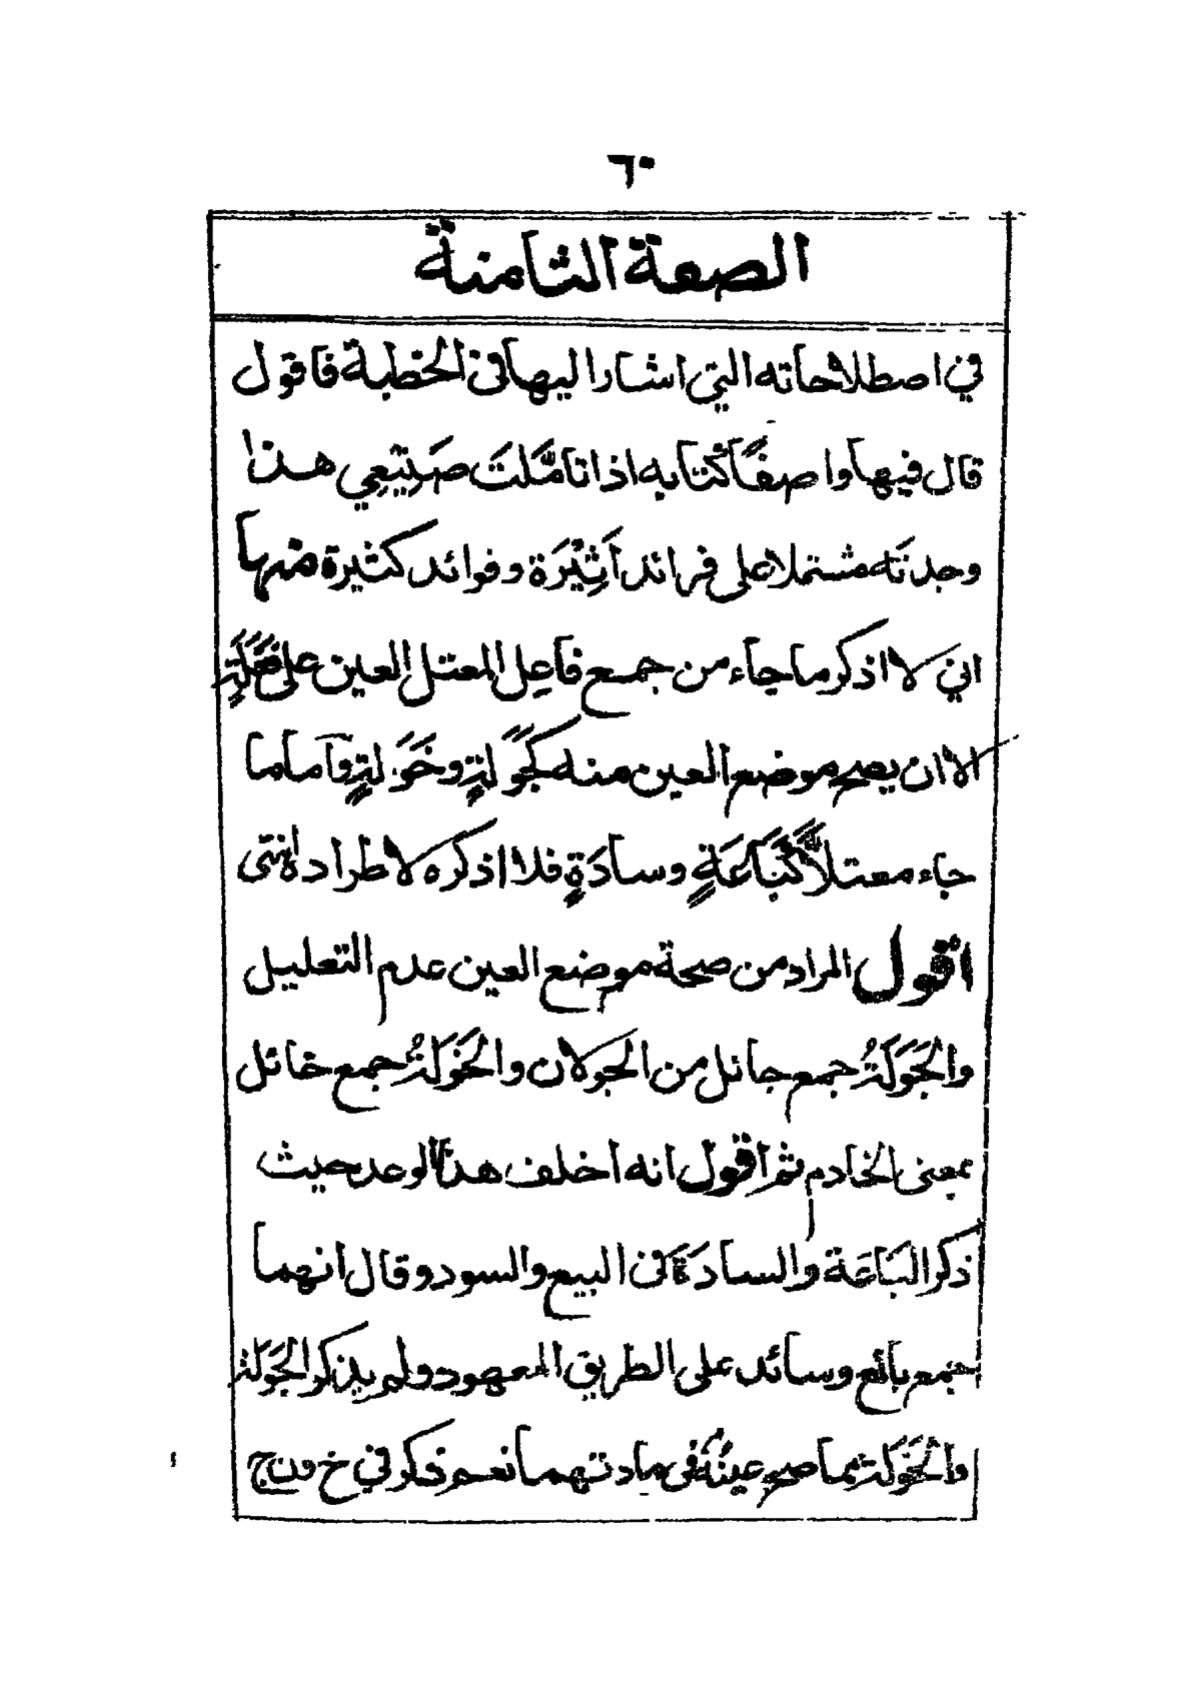 ٦٠
الصفة الثامنة
في اصطلاحاته التي اشار اليها في الخطبة فاقول
قال فيها واصفًا كتابه اذا تأمَّلتَ صَنِيْعِي هذا
وجدتَه مشتملا على فرائد اَثِيْرَة وفوائد كثيرة منها
اني لا اذكر ما جاء من جمع فاعِل المعتل العين على فَعَلَةٍ
الا ان يصح موضع العين منه كجَوَلةٍ وخَوَلةٍ وآما ما
جاء معتلاًّ كَبَاعَةٍ وسادَةٍ فلا اذكره لاطراده انتهى
أقول المراد من صحة موضع العين عدم التعليل
والجَوَلَةُ جمع جائل من الجولان والخَوَلَةُ جمع خائل
بمعنى الخادم ثم اقول انه اخلف هذا الوعد حيث
ذكر البَاعَة والسادَة في البيع والسود وقال انهما
جمع بائع وسائد على الطريق المعهود ولم يذكر الجَوَلة
والخَوَلة مما صح عينُهُ في مادتهما نعم ذكر في خ ون ج